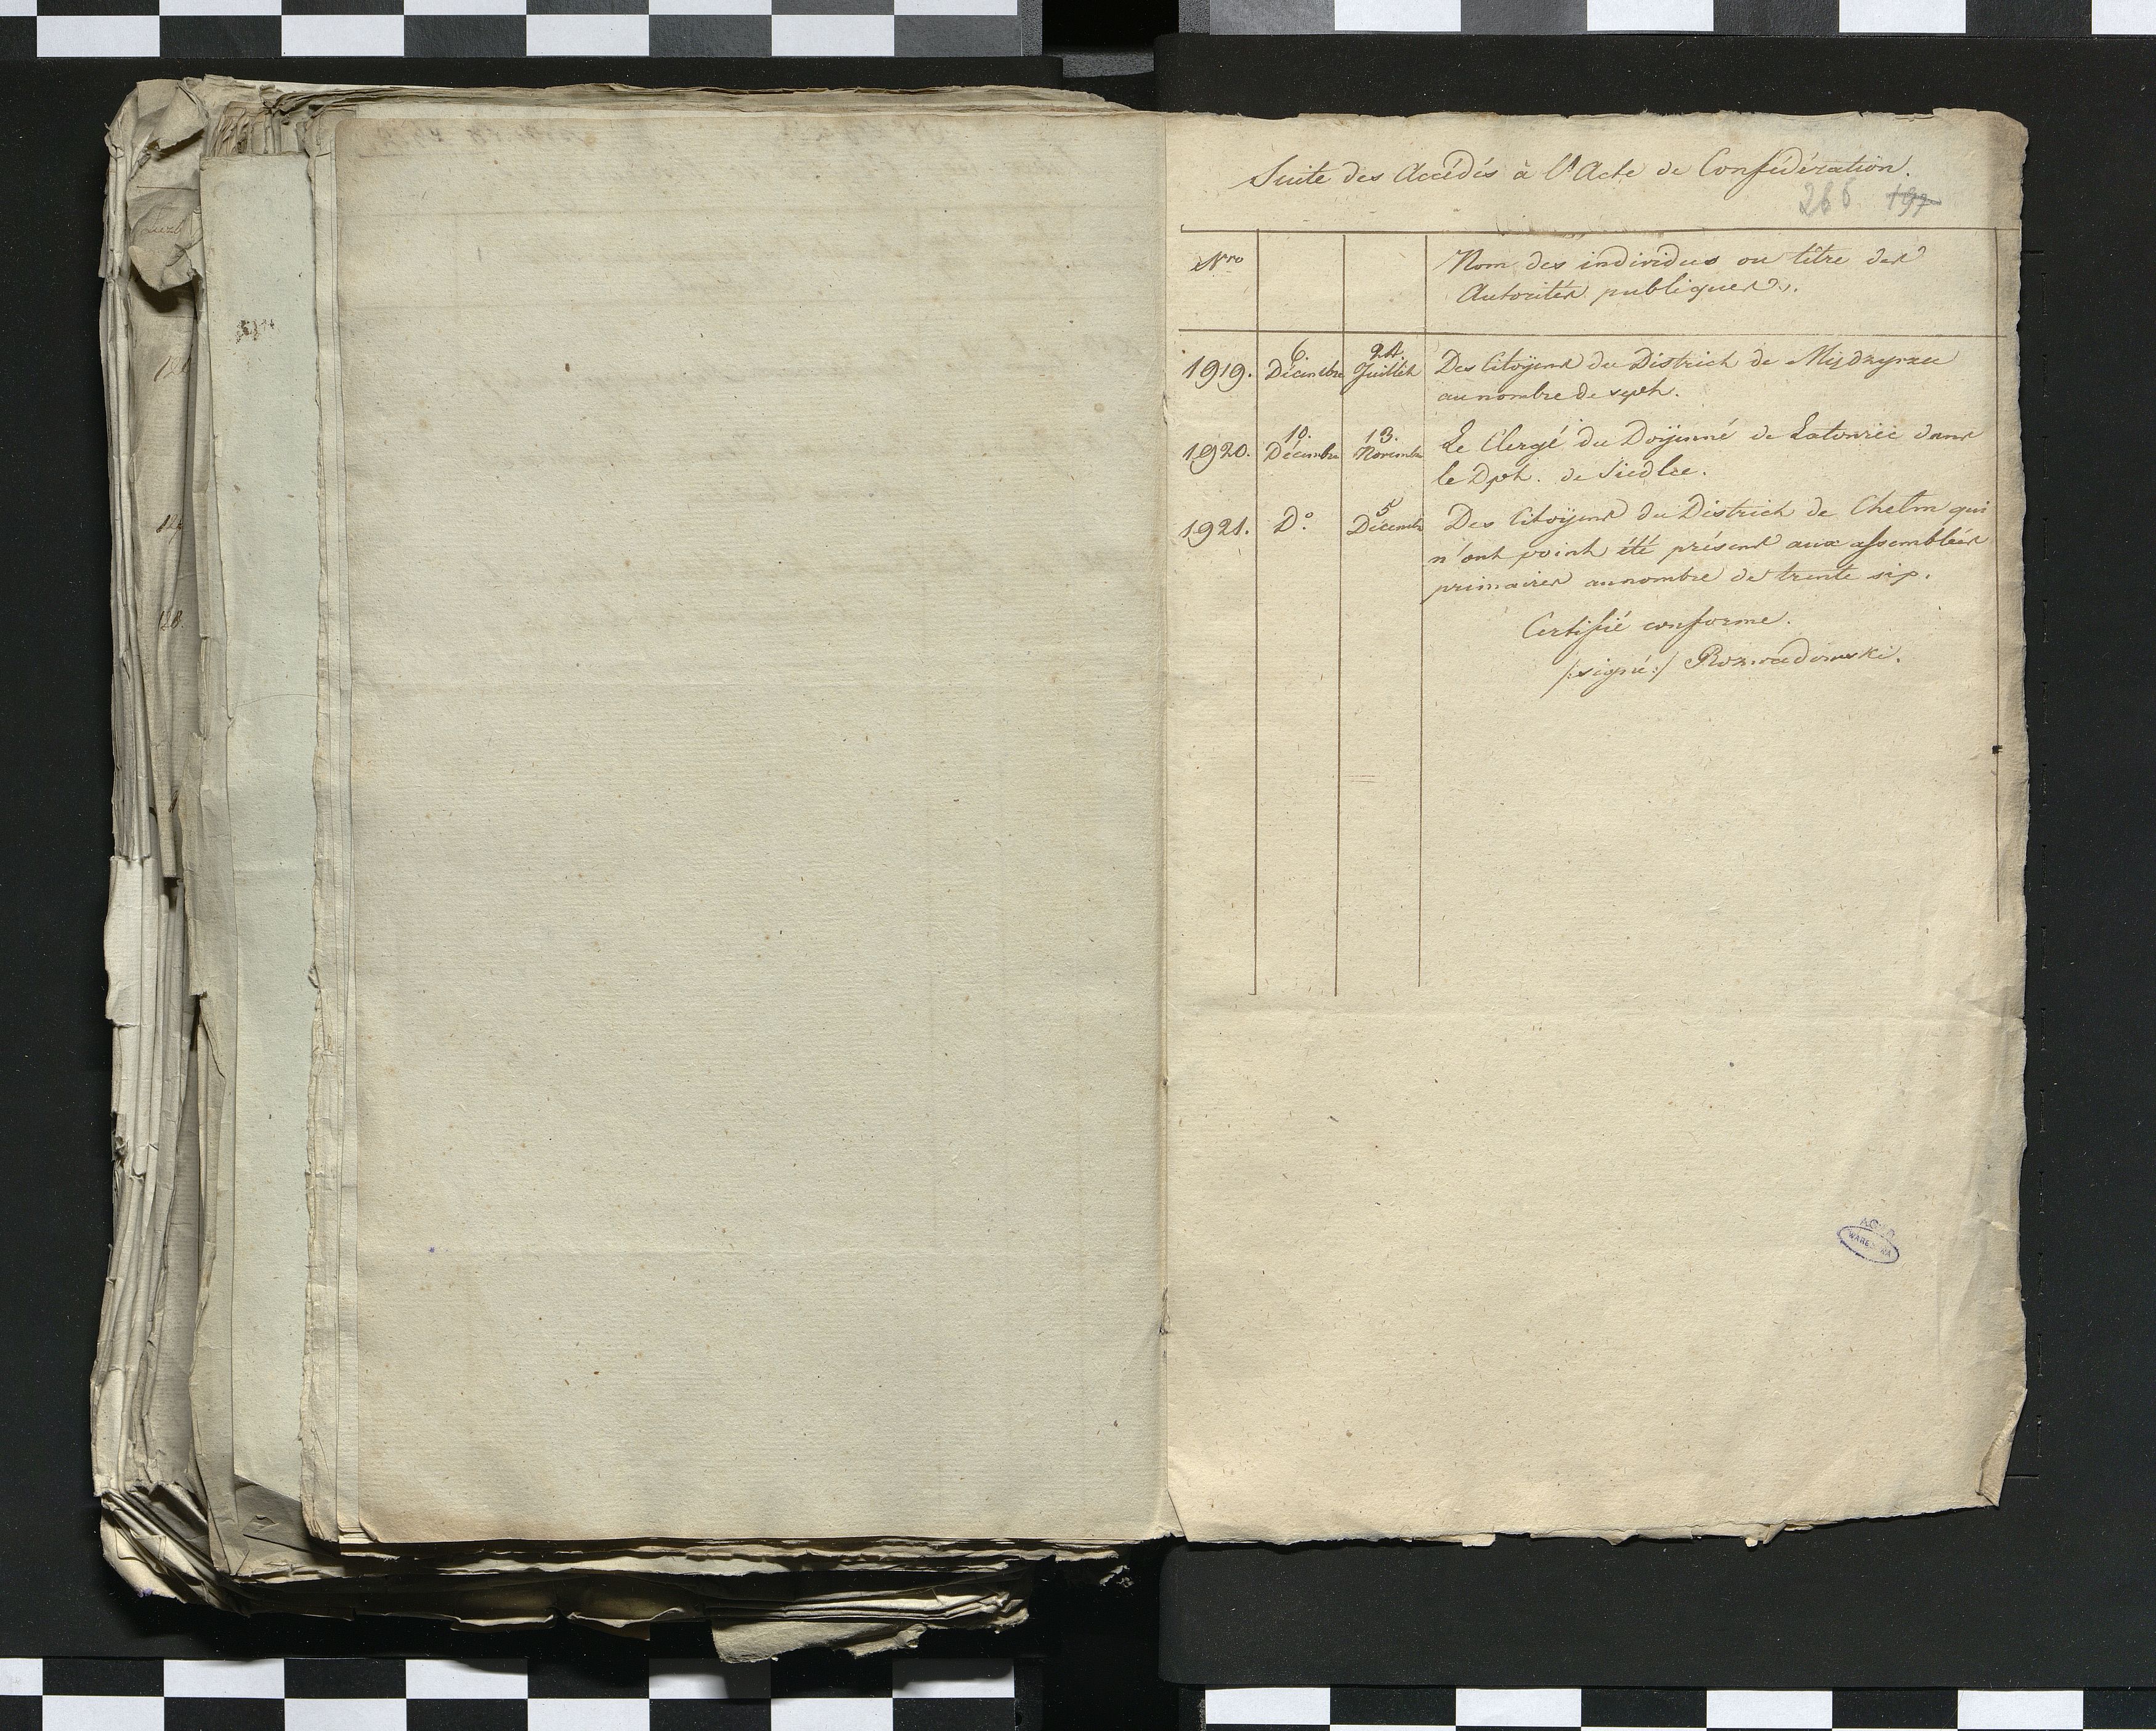 Suite des Accédés à l'Acte de Confédération.
266 197
Nro
Nom des individus ou titre des
Autorités publiques.
1919. 6. Décembre 24. Juillet Des Citoÿens du District de Międzyrzec
au nombre de sept.
1920. 10. Décembre 13. Novembre Le Clergé du Doÿenné de Latowicz dans
le Dpt. de Siedlce.
1921. Do. 5 Décembre Des Citoÿens du District de Chelm qui
n'ont point été présens aux assemblées
primaires au nombre de trente six.
Certifié conforme.
/:signé:/ Rozwadowski.
WARSZAWA